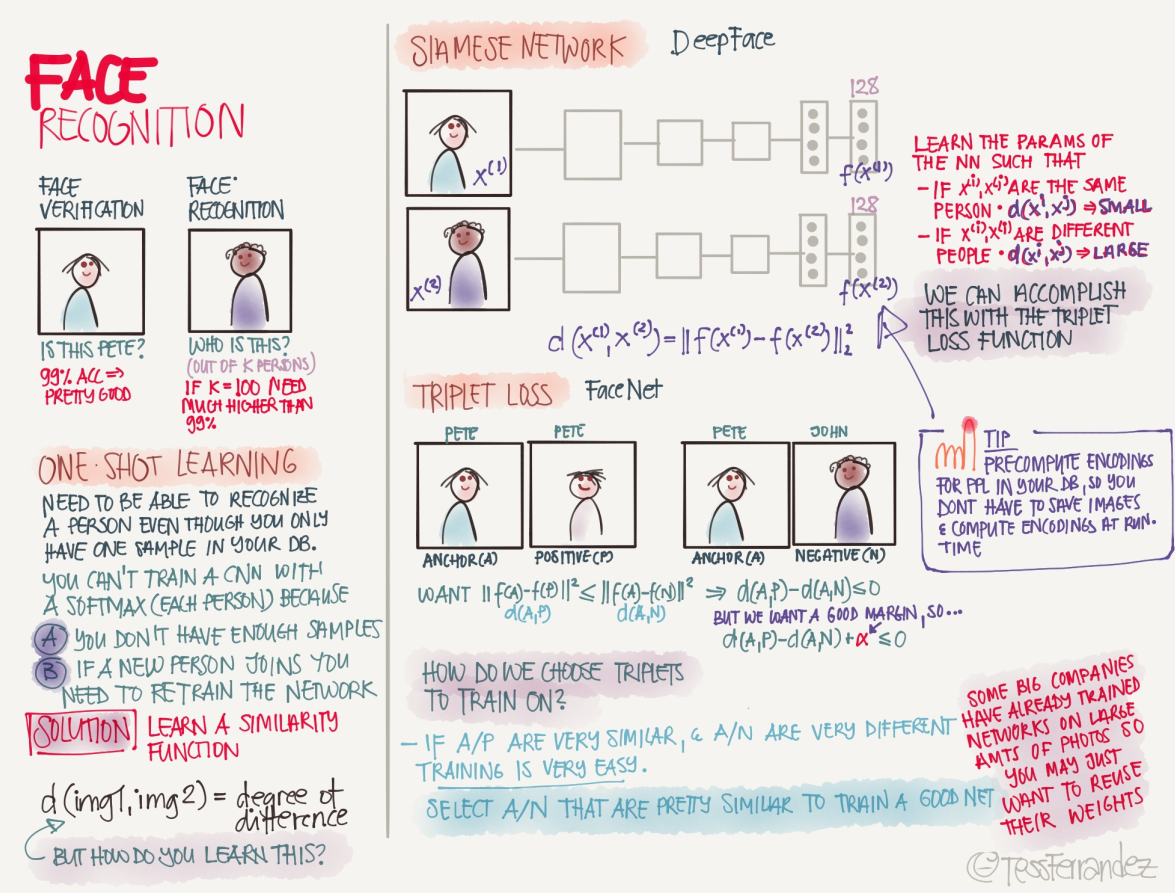 FACE
RECOGNITION
FACE
VERIFICATION
IS THIS PETE?
99% ACC ⇒
PRETTY GOOD
FACE
RECOGNITION
WHO IS THIS?
(OUT OF K PERSONS)
IF K=100 NEED
MUCH HIGHER THAN
99%
ONE-SHOT LEARNING
NEED TO BE ABLE TO RECOGNIZE
A PERSON EVEN THOUGH YOU ONLY
HAVE ONE SAMPLE IN YOUR DB.
YOU CAN'T TRAIN A CNN WITH
A SOFTMAX (EACH PERSON) BECAUSE
A YOU DON'T HAVE ENOUGH SAMPLES
B IF A NEW PERSON JOINS YOU
NEED TO RETRAIN THE NETWORK
SOLUTION LEARN A SIMILARITY
FUNCTION
d(img1,img2) = degree of
difference
BUT HOW DO YOU LEARN THIS?
SIAMESE NETWORK DeepFace
128
x⁽¹⁾
f(x⁽¹⁾)
128
x⁽²⁾
f(x⁽²⁾)
d(x⁽¹⁾,x⁽²⁾)=||f(x⁽¹⁾)-f(x⁽²⁾)||₂²
LEARN THE PARAMS OF
THE NN SUCH THAT
- IF x⁽ⁱ⁾,x⁽ʲ⁾ ARE THE SAME
PERSON · d(xⁱ,xʲ) ⇒ SMALL
- IF x⁽ⁱ⁾,x⁽ʲ⁾ ARE DIFFERENT
PEOPLE · d(xⁱ,xʲ) ⇒ LARGE
WE CAN ACCOMPLISH
THIS WITH THE TRIPLET
LOSS FUNCTION
TIP
PRECOMPUTE ENCODINGS
FOR PPL IN YOUR DB, SO YOU
DONT HAVE TO SAVE IMAGES
& COMPUTE ENCODINGS AT RUN-
TIME
TRIPLET LOSS FaceNet
PETE PETE PETE JOHN
ANCHOR(A) POSITIVE(P) ANCHOR(A) NEGATIVE(N)
WANT ||f(A)-f(P)||² ≤ ||f(A)-f(N)||² ⇒ d(A,P)-d(A,N)≤0
d(A,P) d(A,N)
BUT WE WANT A GOOD MARGIN, SO...
d(A,P)-d(A,N)+α ≤0
HOW DO WE CHOOSE TRIPLETS
TO TRAIN ON?
- IF A/P ARE VERY SIMILAR, & A/N ARE VERY DIFFERENT
TRAINING IS VERY EASY.
SELECT A/N THAT ARE PRETTY SIMILAR TO TRAIN A GOOD NET
SOME BIG COMPANIES
HAVE ALREADY TRAINED
NETWORKS ON LARGE
AMTS OF PHOTOS SO
YOU MAY JUST
WANT TO REUSE
THEIR WEIGHTS
© TessFerrandez